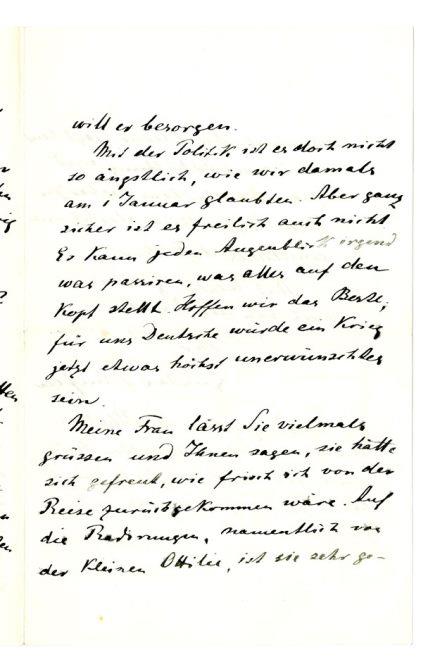 will er besorgen.
Mit der Politik ist es doch nicht
so ängstlich, wie wir damals
am 1 Januar glaubten. Aber ganz
sicher ist es freilich auch nicht
Es kann jeden Augenblick irgend
was passiren, was alles auf den
Kopf stellt. Hoffen wir das Beste,
für uns Deutsche würde ein Krieg
jetzt etwas höchst unerwünschtes
sein.
Meine Frau lässt Sie vielmals
grüssen und Ihnen sagen, sie hätte
sich gefreut, wie frisch ich von der
Reise zurückgekommen wäre. Auf
die Radirungen, namentlich von
der kleinen Ottilie, ist sie sehr ge-